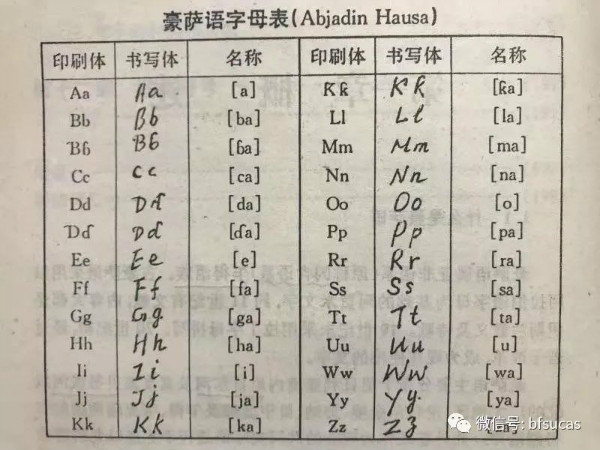 豪萨语字母表(Abjadin Hausa)
印刷体 书写体 名称 印刷体 书写体 名称
Aa Aa [a] Ƙƙ Ƙƙ [ƙa]
Bb Bb [ba] Ll Ll [la]
Ɓɓ Ɓɓ [ɓa] Mm Mm [ma]
Cc Cc [ca] Nn Nn [na]
Dd Dd [da] Oo Oo [o]
Ɗɗ Ɗɗ [ɗa] Pp Pp [pa]
Ee Ee [e] Rr Rr [ra]
Ff Ff [fa] Ss Ss [sa]
Gg Gg [ga] Tt Tt [ta]
Hh Hh [ha] Uu Uu [u]
Ii Ii [i] Ww Ww [wa]
Jj Jj [ja] Yy Yy [ya]
Kk Kk [ka] Zz Zz
微信号: bfsucas